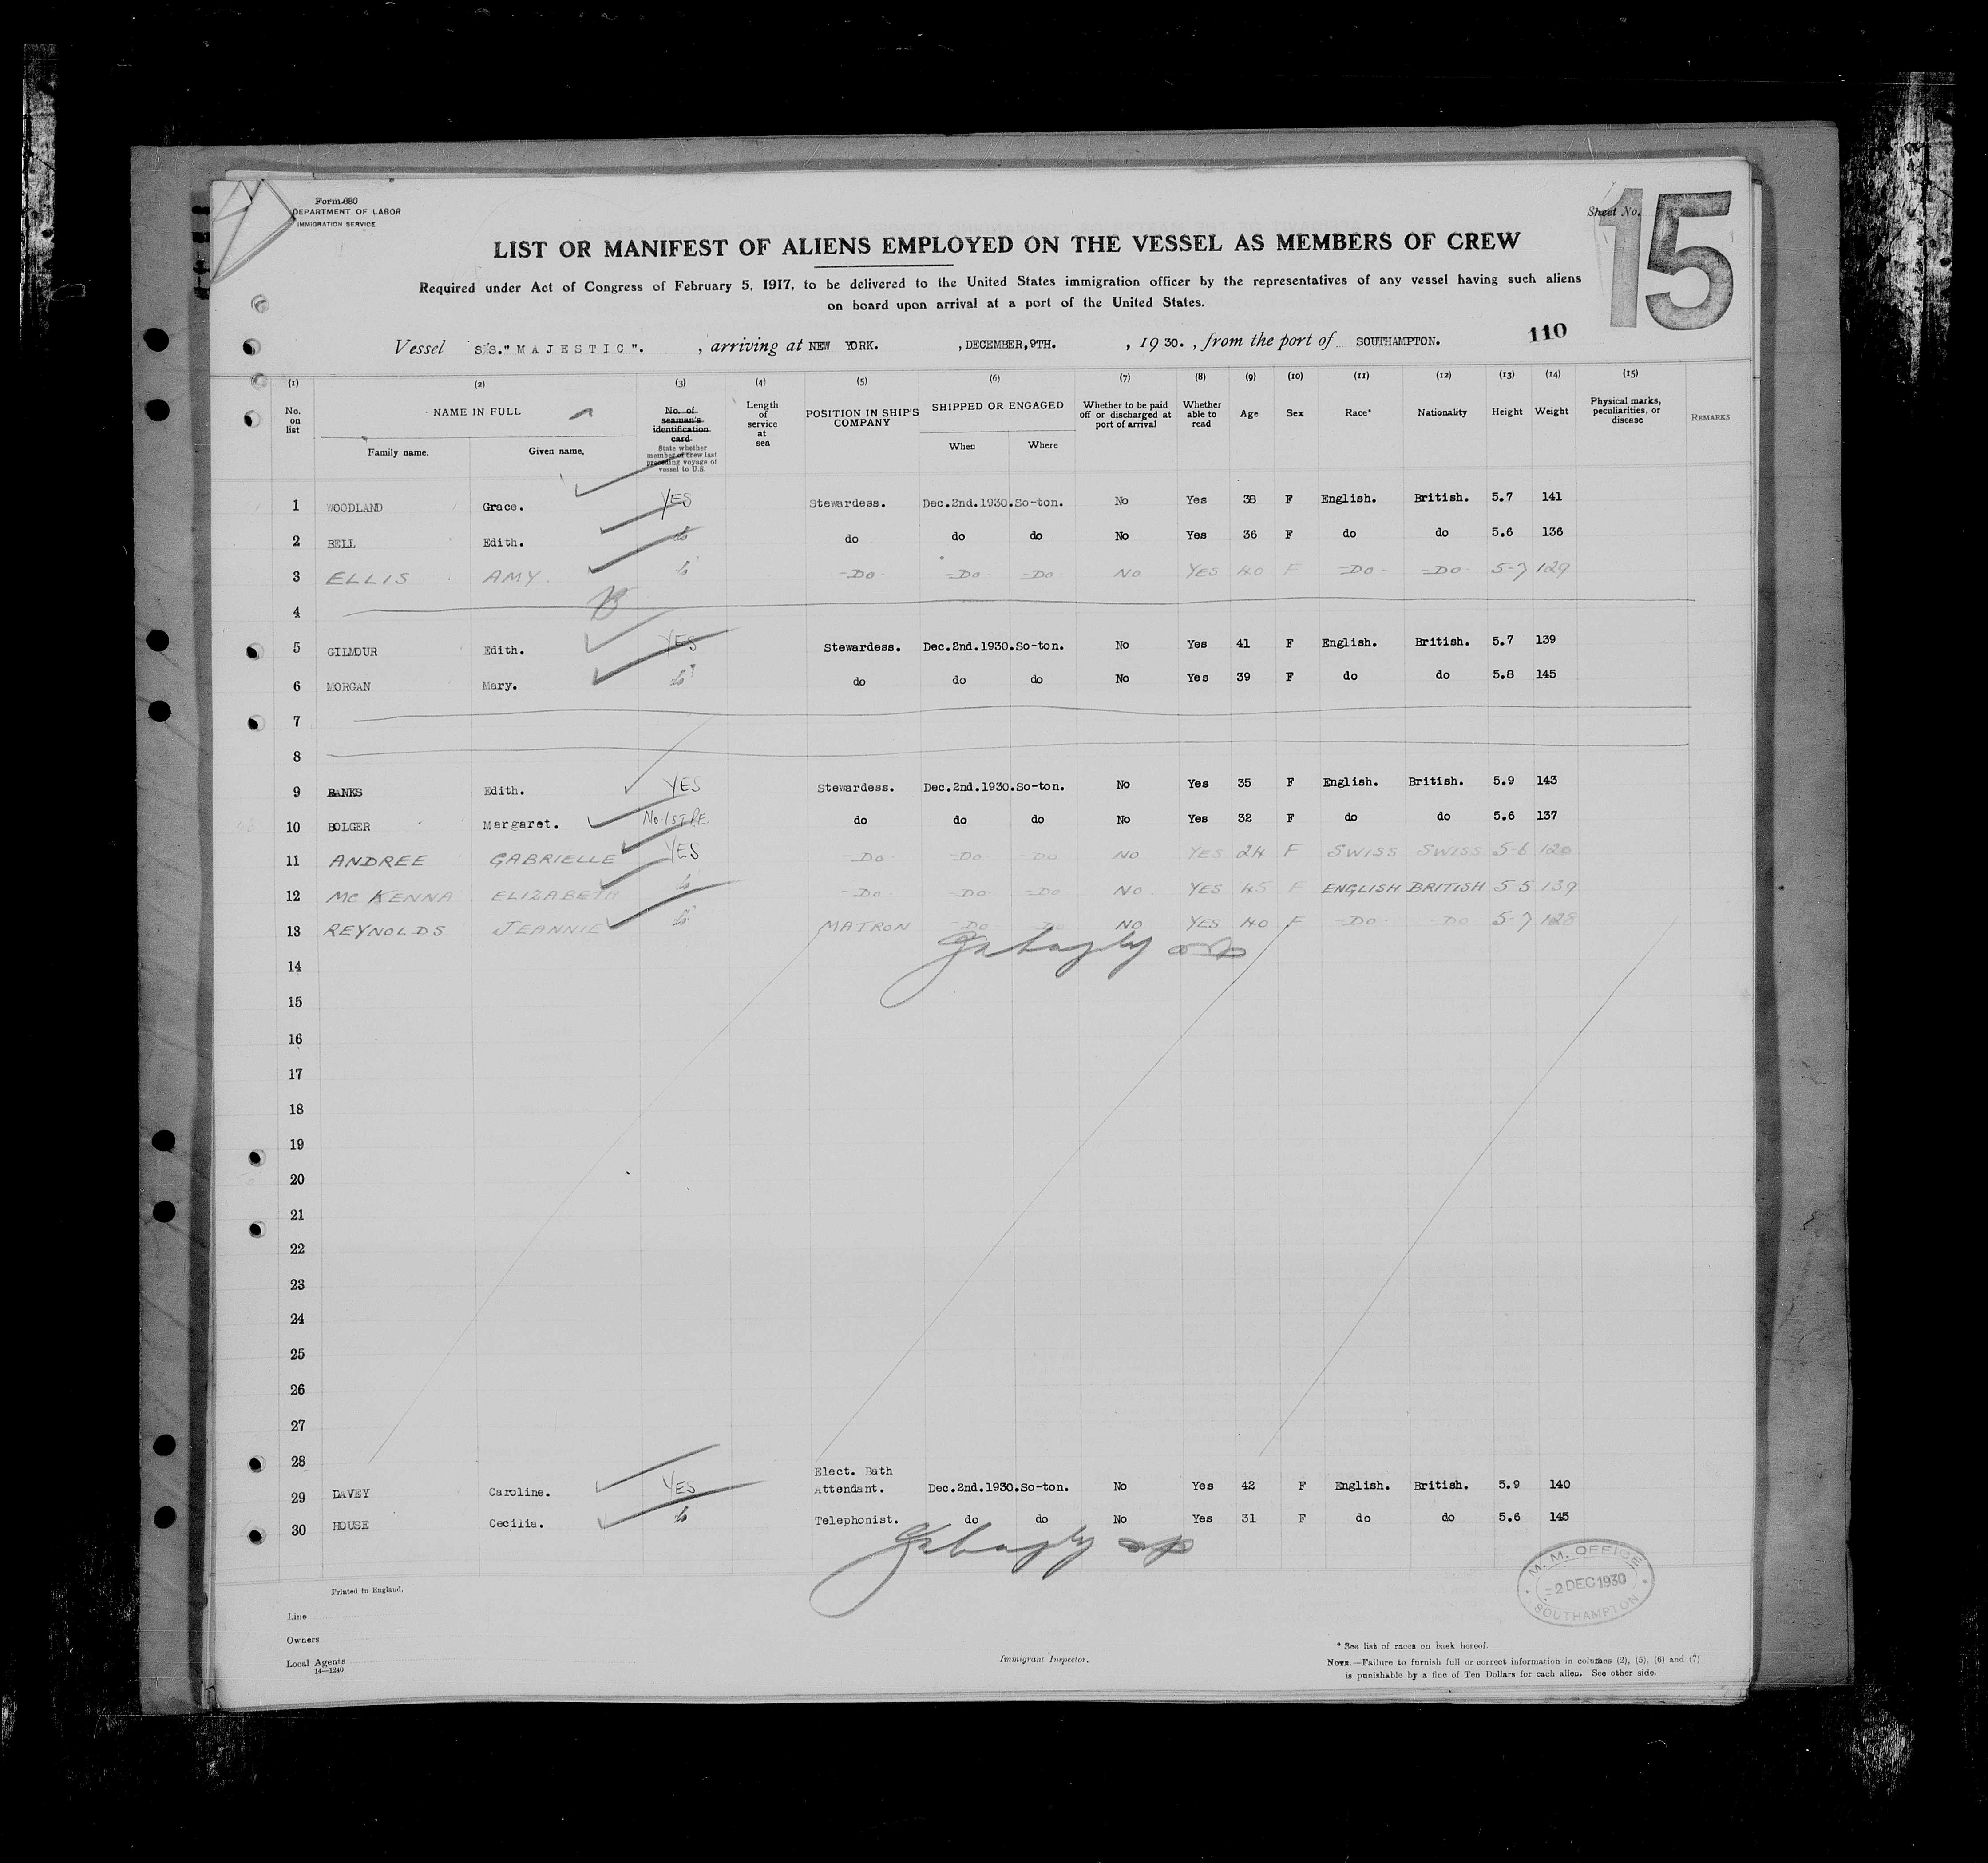 Form 680
DEPARTMENT OF LABOR
IMMIGRATION SERVICE
Sheet No. 15
LIST OR MANIFEST OF ALIENS EMPLOYED ON THE VESSEL AS MEMBERS OF CREW
Required under Act of Congress of February 5, 1917, to be delivered to the United States immigration officer by the representatives of any vessel having such aliens
on board upon arrival at a port of the United States.
110
Vessel S/S." MAJESTIC". , arriving at NEW YORK. , DECEMBER, 9TH. , 1930. , from the port of SOUTHAMPTON.
(1) (2) (3) (4) (5) (6) (7) (8) (9) (10) (11) (12) (13) (14) (15)
No. on list NAME IN FULL Family name. Given name. No. of seaman's identification card State whether member of crew last preceding voyage of vessel to U.S. Length of service at sea POSITION IN SHIP'S COMPANY SHIPPED OR ENGAGED When Where Whether to be paid off or discharged at port of arrival Whether able to read Age Sex Race* Nationality Height Weight Physical marks, peculiarities, or disease REMARKS
1 WOODLAND Grace. YES Stewardess. Dec.2nd.1930. So-ton. No Yes 38 F English. British. 5.7 141
2 BELL Edith. do do do do No Yes 36 F do do 5.6 136
3 ELLIS AMY. do -DO- -DO- -DO- NO YES 40 F -DO- -DO- 5-7 129
4
5 GILMOUR Edith. YES Stewardess. Dec.2nd.1930. So-ton. No Yes 41 F English. British. 5.7 139
6 MORGAN Mary. do do do do No Yes 39 F do do 5.8 145
7
8
9 BANKS Edith. YES Stewardess. Dec.2nd.1930. So-ton. No Yes 35 F English. British. 5.9 143
10 BOLGER Margaret. No 1ST RE do do do No Yes 32 F do do 5.6 137
11 ANDREE GABRIELLE YES -DO- -DO- -DO- NO YES 24 F SWISS SWISS 5-6 120
12 MC KENNA ELIZABETH do -DO- -DO- -DO- NO. YES 45 F ENGLISH BRITISH 5-5 139
13 REYNOLDS JEANNIE do MATRON -DO- -DO- NO YES 40 F -DO- -DO- 5-7 128
14
15
16
17
18
19
20
21
22
23
24
25
26
27
28
29 DAVEY Caroline. YES Elect. Bath Attendant. Dec.2nd.1930. So-ton. No Yes 42 F English. British. 5.9 140
30 HOUSE Cecilia. do Telephonist. do do No Yes 31 F do do 5.6 145
M. M. OFFICE
-2 DEC 1930
SOUTHAMPTON
Printed in England.
Line
Owners
Local Agents
14—1240
Immigrant Inspector.
* See list of races on back hereof.
NOTE.—Failure to furnish full or correct information in columns (2), (5), (6) and (7)
is punishable by a fine of Ten Dollars for each alien. See other side.